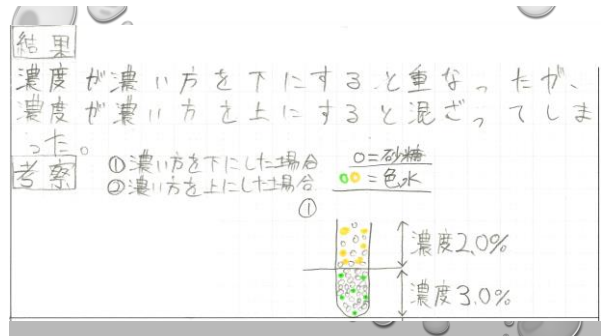 結果
濃度が濃い方を下にすると重なったが、
濃度が濃い方を上にすると混ざってしま
った。
考察
①濃い方を下にした場合
②濃い方を上にした場合
○=砂糖
○○=色水
①
濃度2.0%
濃度3.0%